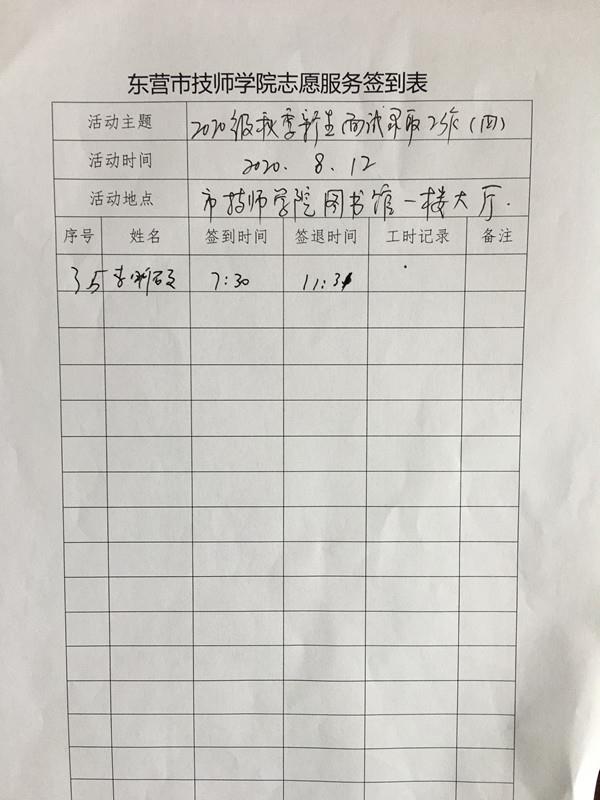 东营市技师学院志愿服务签到表
活动主题 2020级秋季新生面试录取工作(四)
活动时间 2020.8.12
活动地点 市技师学院图书馆一楼大厅.
序号 姓名 签到时间 签退时间 工时记录 备注
35 李 7:30 11:31